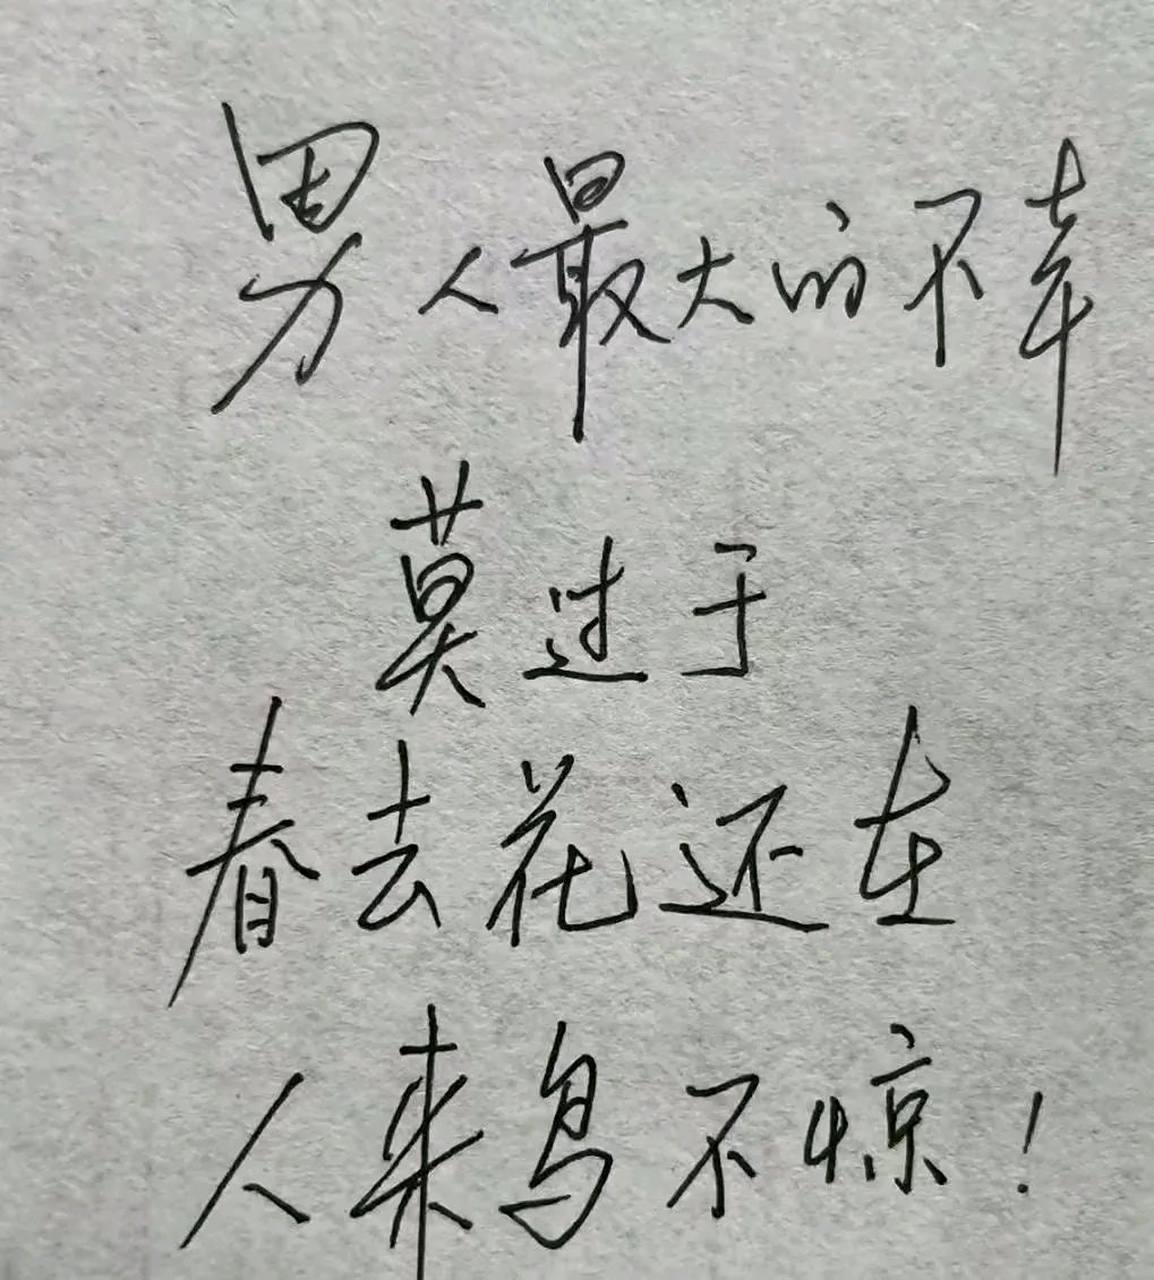 男人最大的不幸
莫过于
春去花还在
人来鸟不惊！